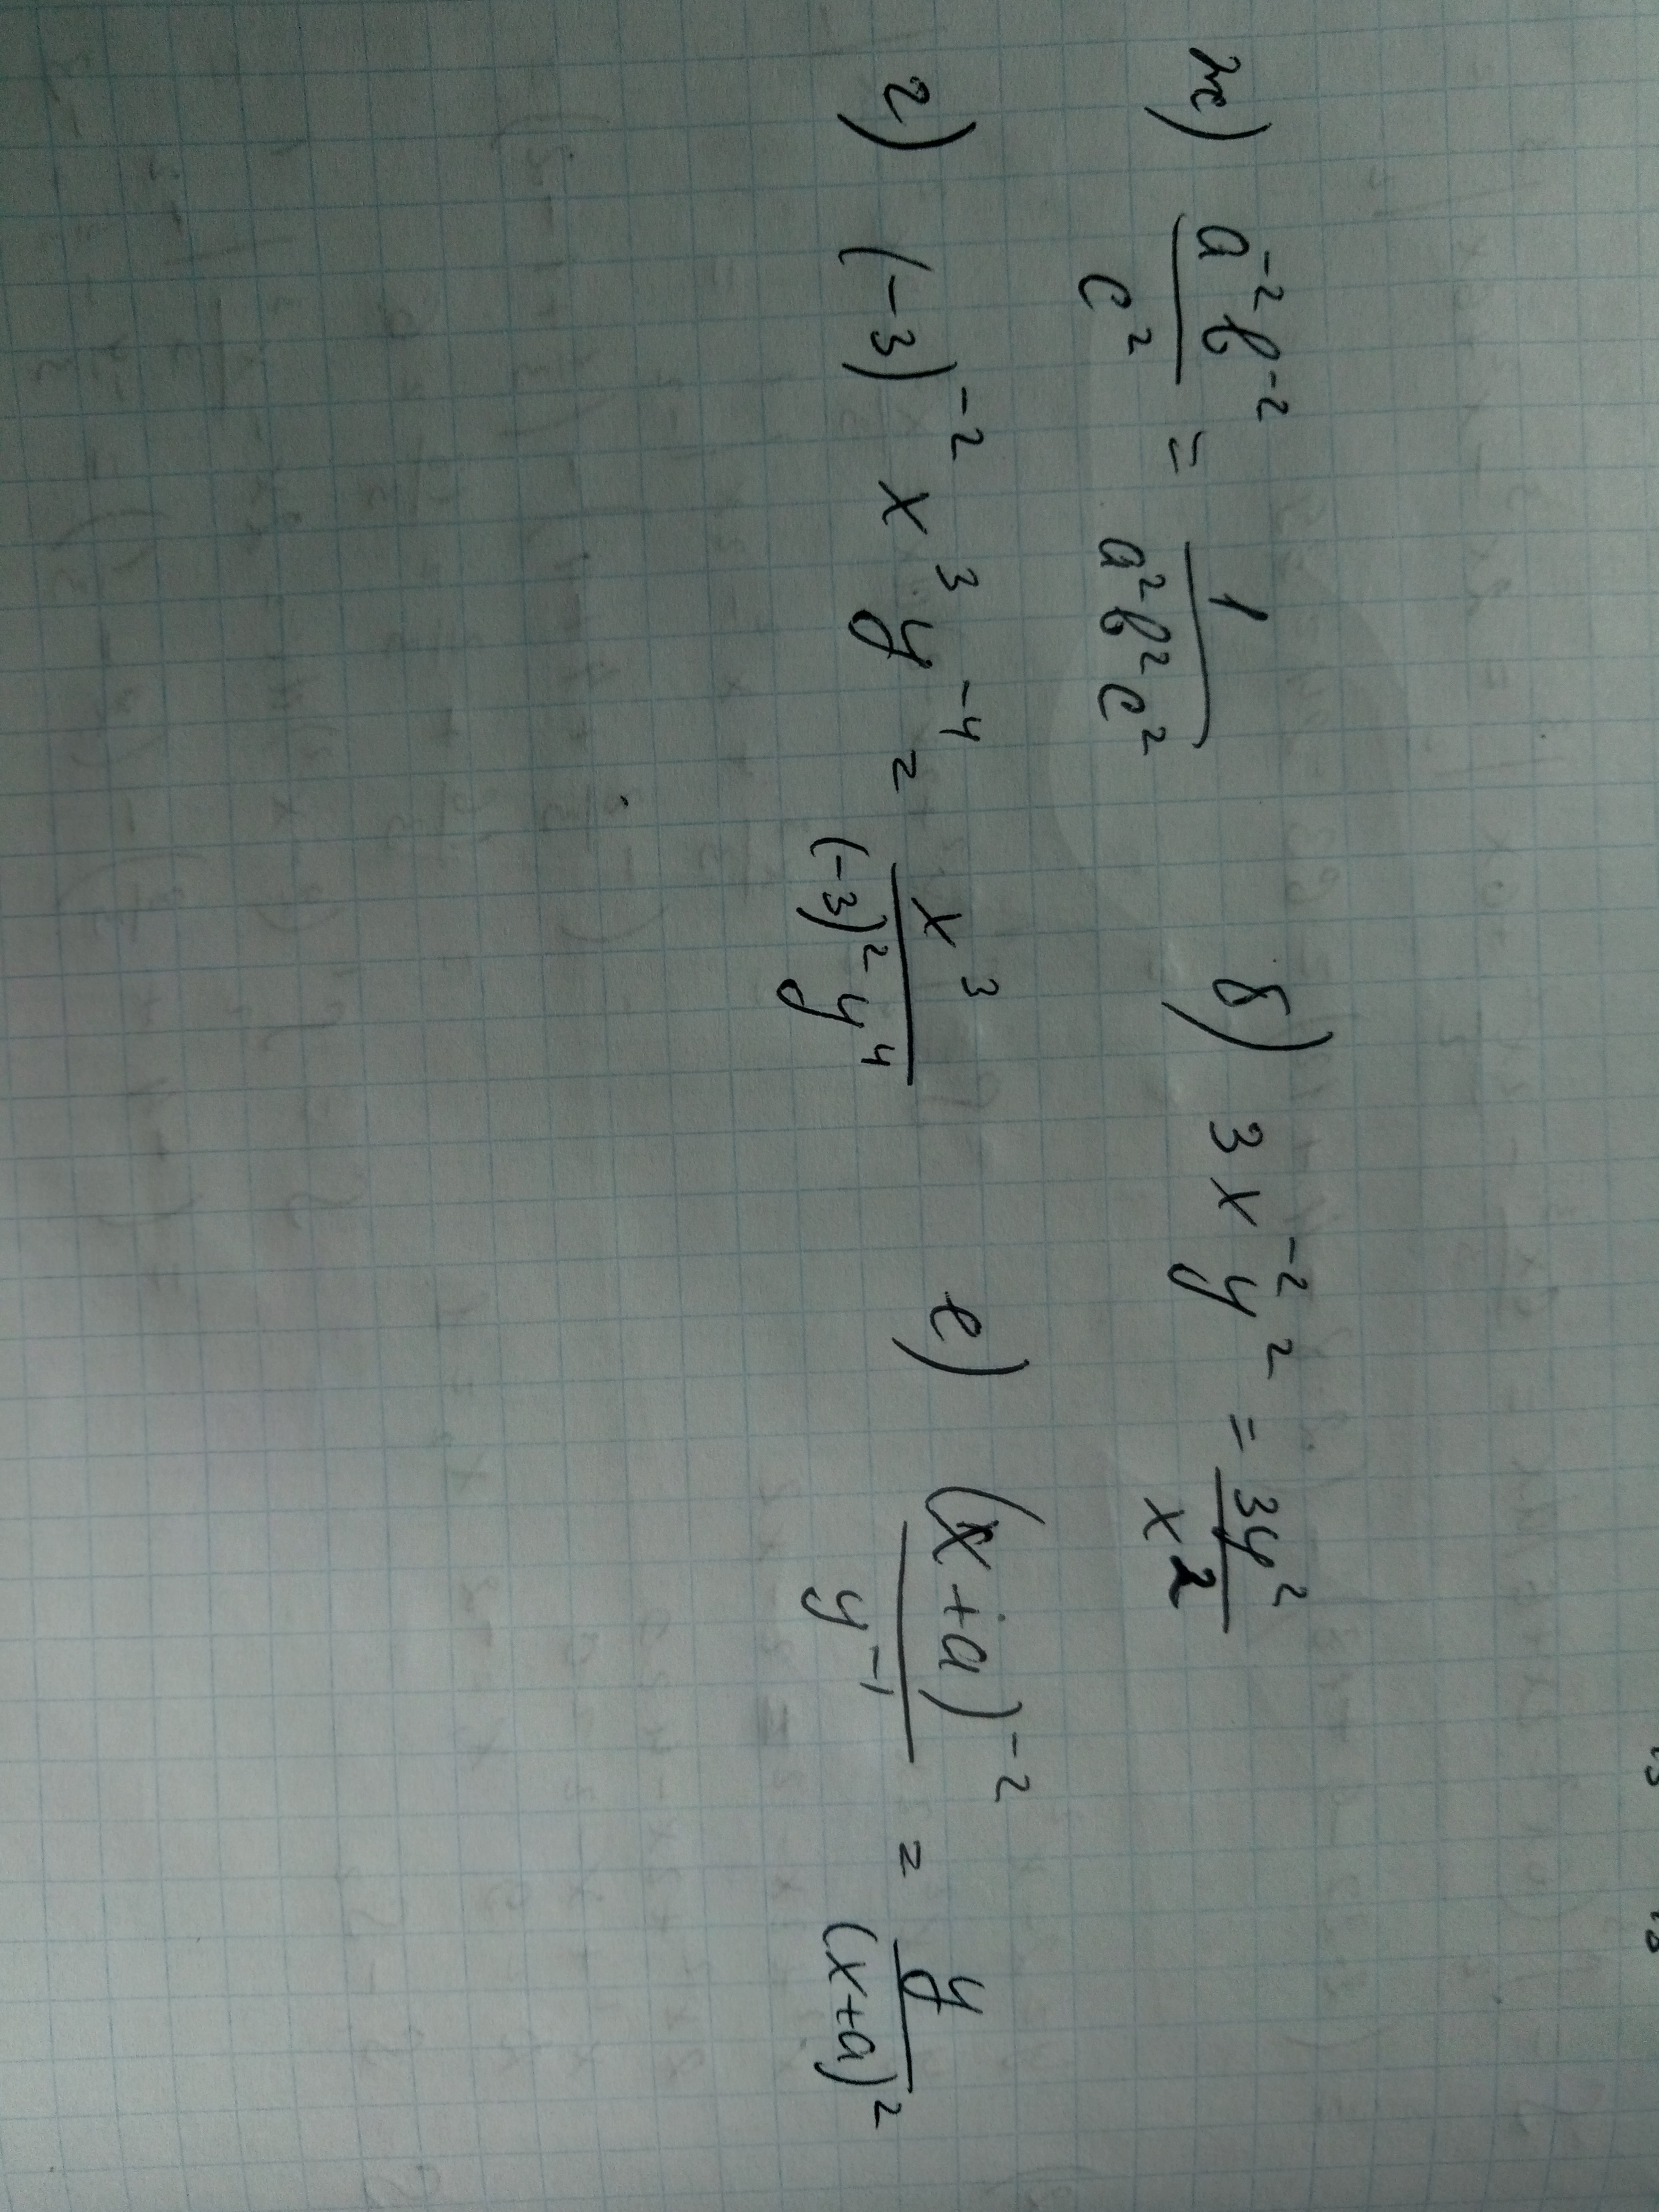 ж) a⁻²b⁻²/c² = 1/(a²b²c²) б) 3x⁻²y² = 3y²/x²
г) (-3)⁻² x³ y⁻⁴ = x³/((-3)² y⁴) е) (x+a)⁻²/y⁻¹ = y/(x+a)²